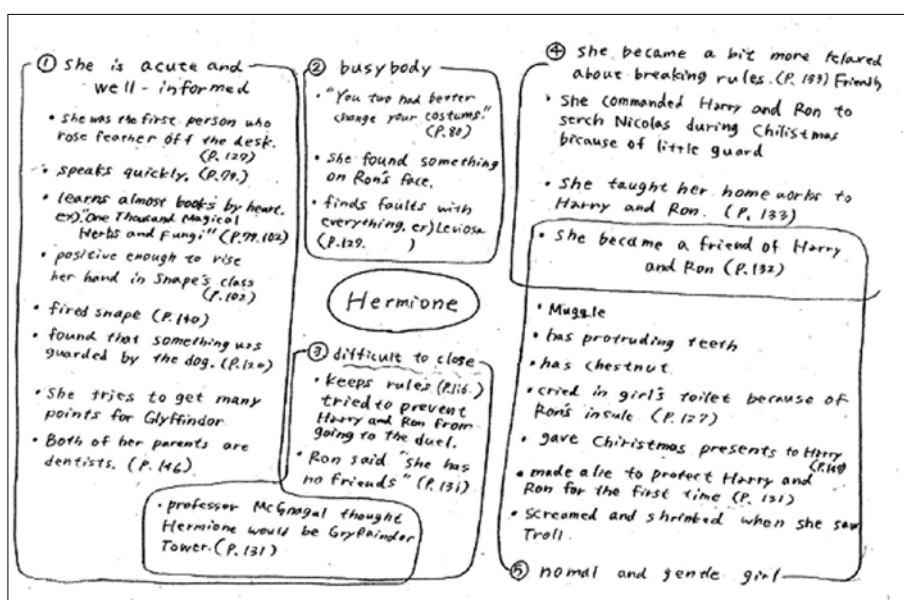 ① she is acute and
well-informed
• she was the first person who
rose feather off the desk.
(P.129)
• speaks quickly. (P.79.)
• learns almost books by heart.
ex). "One Thousand Magical
Herbs and Fungi" (P.79.102)
• positive enough to rise
her hand in Snape's class
(P.102)
• fired snape (P.140)
• found that something was
guarded by the dog. (P.120)
• She tries to get many
points for Glyffindor
• Both of her parents are
dentists. (P.146)
• professor McGnagal thought
Hermione would be
Tower. (P.131)
② busybody
• "You two had better
change your costums."
(P.80)
• she found something
on Ron's face.
• finds faults with
everything. ex) Leviosa
(P.129. )
Hermione
③ difficult to close
• keeps rules (P.116.)
tried to prevent
Harry and Ron from
going to the duel.
• Ron said "she has
no friends" (P.131)
④ she became a bit more relaxed
about breaking rules. (P.133) Friendly
• She commanded Harry and Ron to
serch Nicolas during Chilistmas
bicause of little guard
• She taught her home works to
Harry and Ron. (P. 133)
• She became a friend of Harry
and Ron (P.132)
• Muggle
• has protruding teeth
• has chestnut
• cried in girl's toilet because of
Ron's insule. (P.127)
• gave Chiristmas presents to Harry
• made a lie to protect Harry and
Ron for the first time (P. 131)
• Screamed and shrinked when she saw
Troll.
⑤ nomal and gentle girl